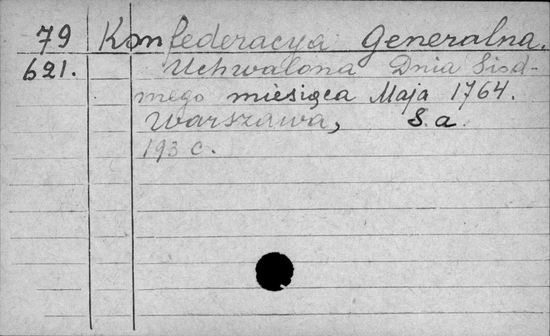 79 Konfederacya Generalna.
621. Uchwalona Dnia Siod-
mego miesiąca Maja 1764.
Warszawa, S.a.
193 c.